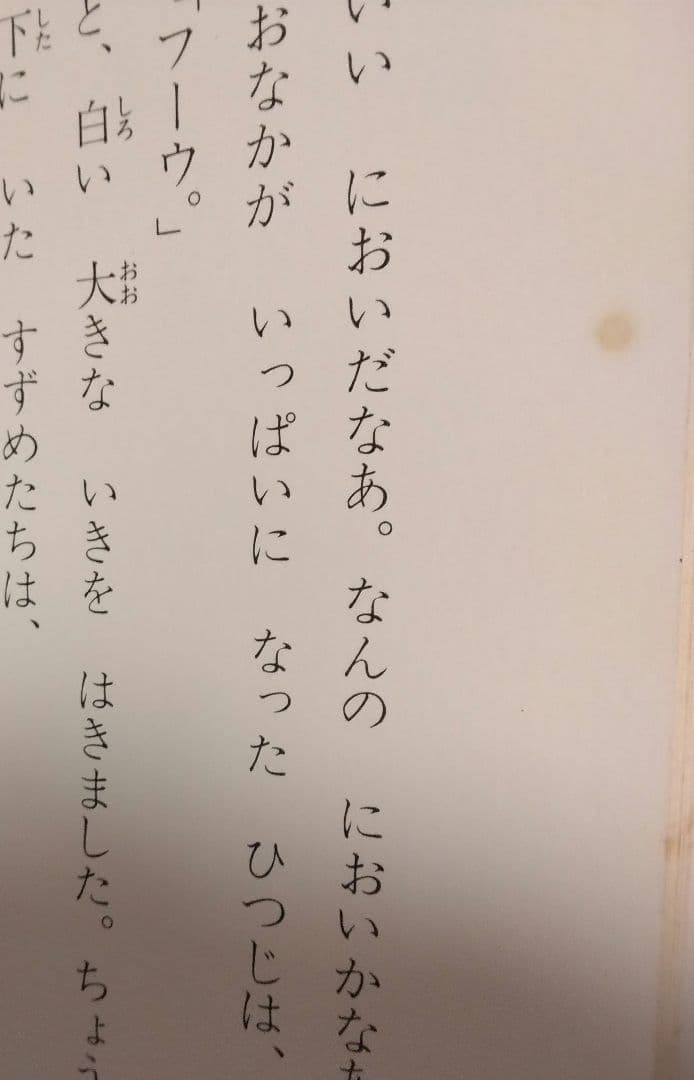 いい においだなあ。なんの においかな
おなかが いっぱいに なった ひつじは、
「フーウ。」
と、白い 大きな いきを はきました。ちょう
下に いた すずめたちは、